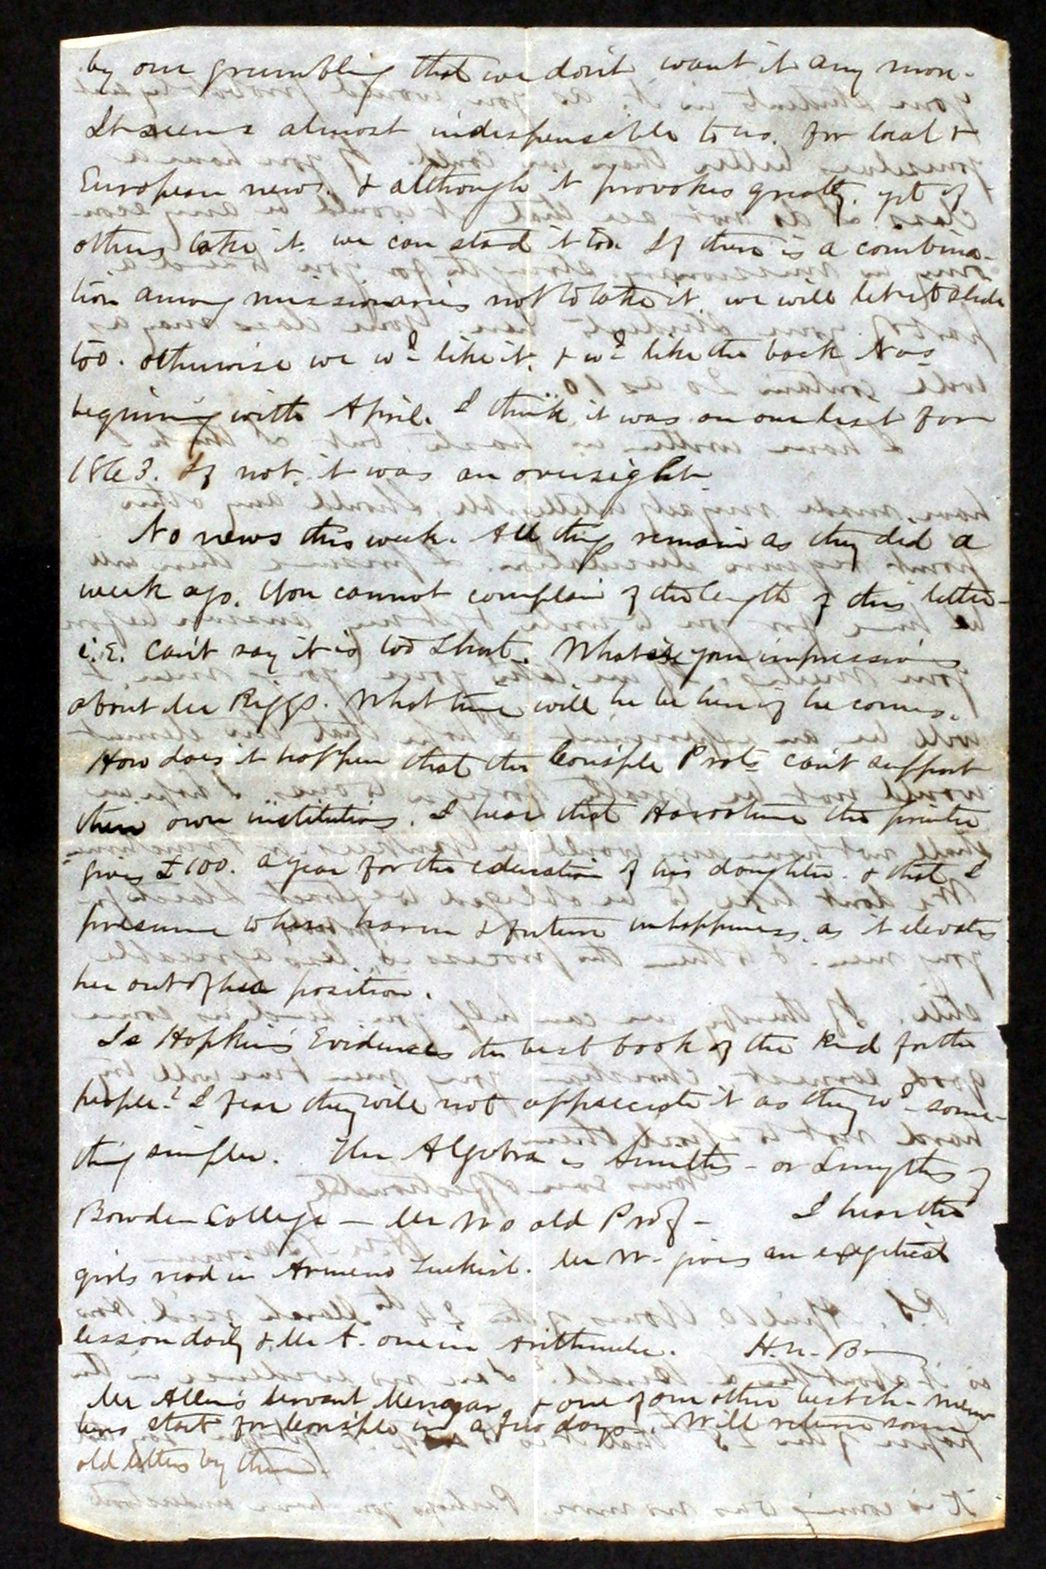 by our grumbling that we don't want it any more.
It seems almost indispensable to us. for local &
European news. & although it provokes greatly. yet if
others take it. we can stand it too. If there is a combina-
tion among missionaries not to take it, we will let it slide
too. otherwise we wd like it, & wd like the back Nos
begining with April. I think it was on our list for
1863. If not, it was an oversight.
No news this week. All things remain as they did a
week ago. You cannot complain of the length of this letter-
i.e. can't say it is too short. What is your impressions
about Mr Riggs. What time will he be here if he comes.
How does it happen that the Consple Prots can't support
their own institutions. I hear that the printer
gives £100. a year for the education of his daughter. & that I
presume to her harm & future unhappiness. as it elevates
her out of her position.
Is Hopkins' Evidences the best book of the kind for the
people? I fear they will not appreciate it as they wd some-
thing simpler. The Algebra is Smith's - or Smyths of
Bowden College — Mr Ws old Prof - I hear the
girls read in Armeno Turkish. Mr W. gives an exegetical
lesson daily & Mr A. one in Arithmetic. H.N. B
Mr Allen's servant & one of our other best ch- mem
bers start for Consple in a few days. Will return some
old letters by them.